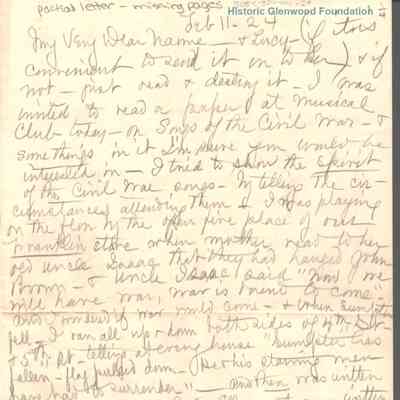 partial letter - missing pages
Historic Glenwood Foundation
Feb 11 - 24 (if tis
My Very Dear Name - & Lucy -
convenient to send it on to her) & if
not - just read & destroy it - I was
invited to read a paper at Musical
Club today - on Songs of the Civil War - &
some things in it I'm sure you would be
interested in - I tried to show the spirit
of the Civil War songs - by telling the cir-
cumstances attending them & I was playing
on the floor by the open fire place of our
Franklin stove when mother read to her
old uncle Isaac that they had hanged John
Brown - & Uncle Isaac said "Now we
will have war, war is bound to come"
and I wondered if war would come - & when Sumpter
fell - I ran all up & down both sides of 4th St
& 5th St - telling at every house "Sumpter has
fallen - flag pulled down - & his starving men
have had to surrender" - and then was written
written